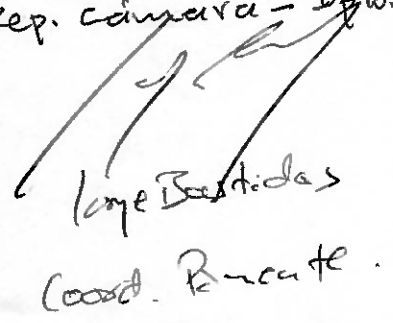 Rep. Cámara -
Jorge Bastidas
Coord. Ponente.